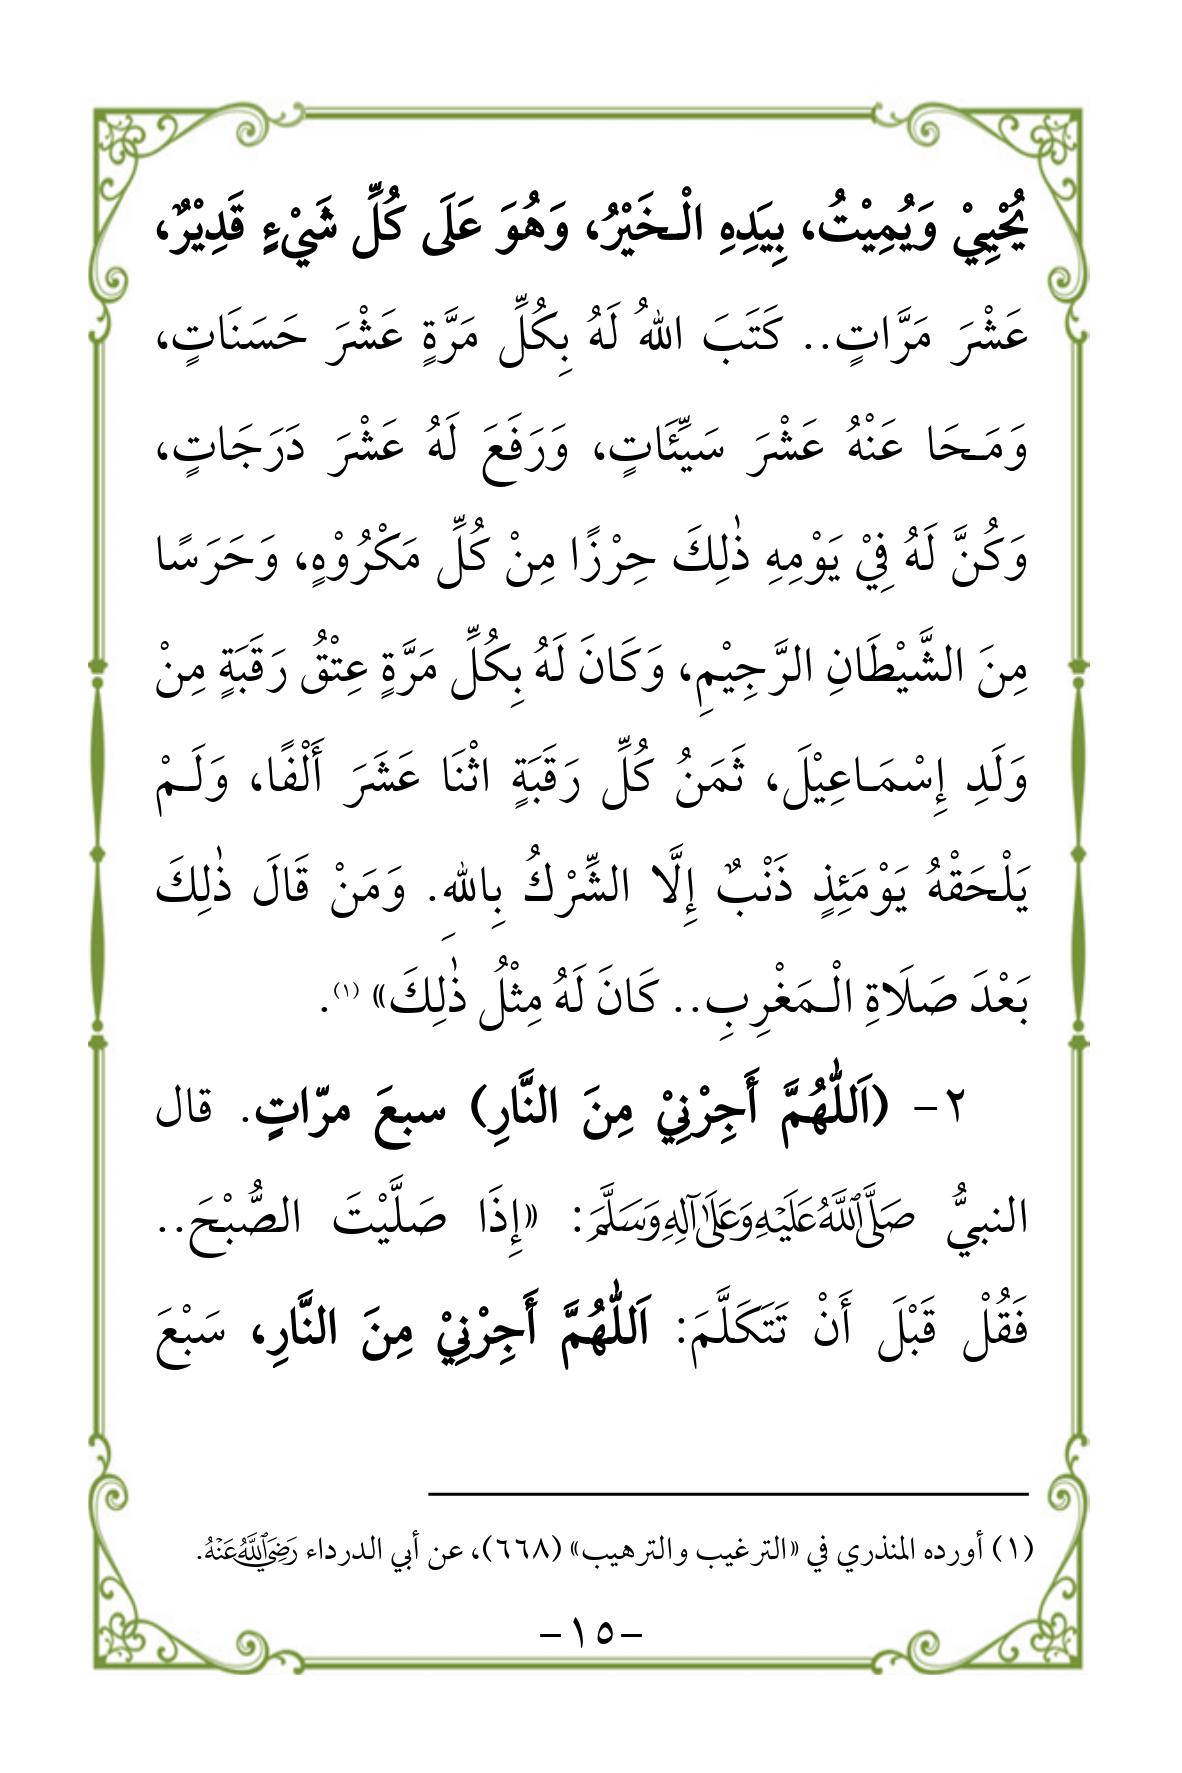 يُحْيِيْ وَيُمِيْتُ، بِيَدِهِ الْـخَيْرُ، وَهُوَ عَلَى كُلِّ شَيْءٍ قَدِيْرٌ،
عَشْرَ مَرَّاتٍ.. كَتَبَ اللهُ لَهُ بِكُلِّ مَرَّةٍ عَشْرَ حَسَنَاتٍ،
وَمَـحَا عَنْهُ عَشْرَ سَيِّئَاتٍ، وَرَفَعَ لَهُ عَشْرَ دَرَجَاتٍ،
وَكُنَّ لَهُ فِيْ يَوْمِهِ ذٰلِكَ حِرْزًا مِنْ كُلِّ مَكْرُوْهٍ، وَحَرَسًا
مِنَ الشَّيْطَانِ الرَّجِيْمِ، وَكَانَ لَهُ بِكُلِّ مَرَّةٍ عِتْقُ رَقَبَةٍ مِنْ
وَلَدِ إِسْمَـاعِيْلَ، ثَمَنُ كُلِّ رَقَبَةٍ اثْنَا عَشَرَ أَلْفًا، وَلَـمْ
يَلْحَقْهُ يَوْمَئِذٍ ذَنْبٌ إِلَّا الشِّرْكُ بِاللهِ. وَمَنْ قَالَ ذٰلِكَ
بَعْدَ صَلَاةِ الْـمَغْرِبِ.. كَانَ لَهُ مِثْلُ ذٰلِكَ» (١).
٢- (اَللّٰهُمَّ أَجِرْنِيْ مِنَ النَّارِ) سبعَ مرّاتٍ. قال
النبيُّ صَلَّى اللَّهُ عَلَيْهِ وَعَلَىٰ آلِهِ وَسَلَّمَ: «إِذَا صَلَّيْتَ الصُّبْحَ..
فَقُلْ قَبْلَ أَنْ تَتَكَلَّمَ: اَللّٰهُمَّ أَجِرْنِيْ مِنَ النَّارِ، سَبْعَ
(١) أورده المنذري في «الترغيب والترهيب» (٦٦٨)، عن أبي الدرداء رَضِيَ اللَّهُ عَنْهُ.
-١٥-